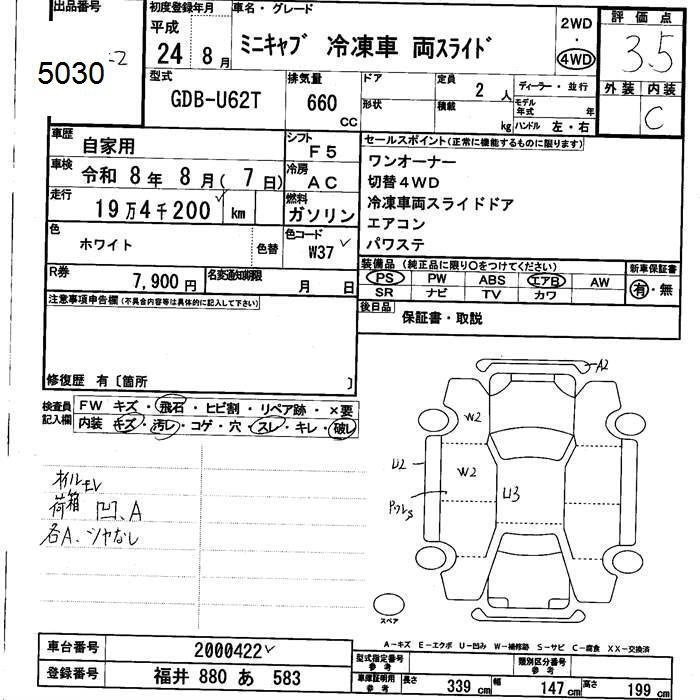 出品番号 初度登録年月 車名・グレード 評価点
5030 平成 24 8月 ミニキャブ 冷凍車 両スライド 2WD・4WD 3.5
型式 排気量 ドア 定員 ディーラー・並行 外装 内装
GDB-U62T 660 CC 形状 積載 2人 kg モデル年式 年 ハンドル 左・右 C
車歴 自家用 シフト F5 セールスポイント(正常に機能するものに限ります)
車検 令和 8年 8月(7日) 冷房 AC ワンオーナー
切替4WD
走行 19万4千200 km 燃料 ガソリン 冷凍車両スライドドア
エアコン
色 ホワイト 色替 色コード W37 パワステ
R券 7,900円 名変通知期限 月 日 装備品(純正品に限り○をつけてください) 新車保証書
PS PW ABS エアB AW 有・無
SR ナビ TV カワ
注意事項申告欄(不具合内容等は具体的に記入して下さい) 後日品 保証書・取説
修復歴 有〔箇所 〕
検査員記入欄 FW キズ・飛石・ヒビ割・リペア跡・×要
内装 キズ・汚レ・コゲ・穴・スレ・キレ・破レ
A2
W2
U2 W2
U3
オイルモレ
荷箱 凹、A
各A、シャなし
スペア
A-キズ E-エクボ U-凹み W-補修跡 S-サビ C-腐食 XX-交換済
車台番号 2000422 型式指定番号 参考 類別区分番号 参考
登録番号 福井 880 あ 583 車庫証明用 参考 長さ 339cm 幅 147cm 高さ 199cm